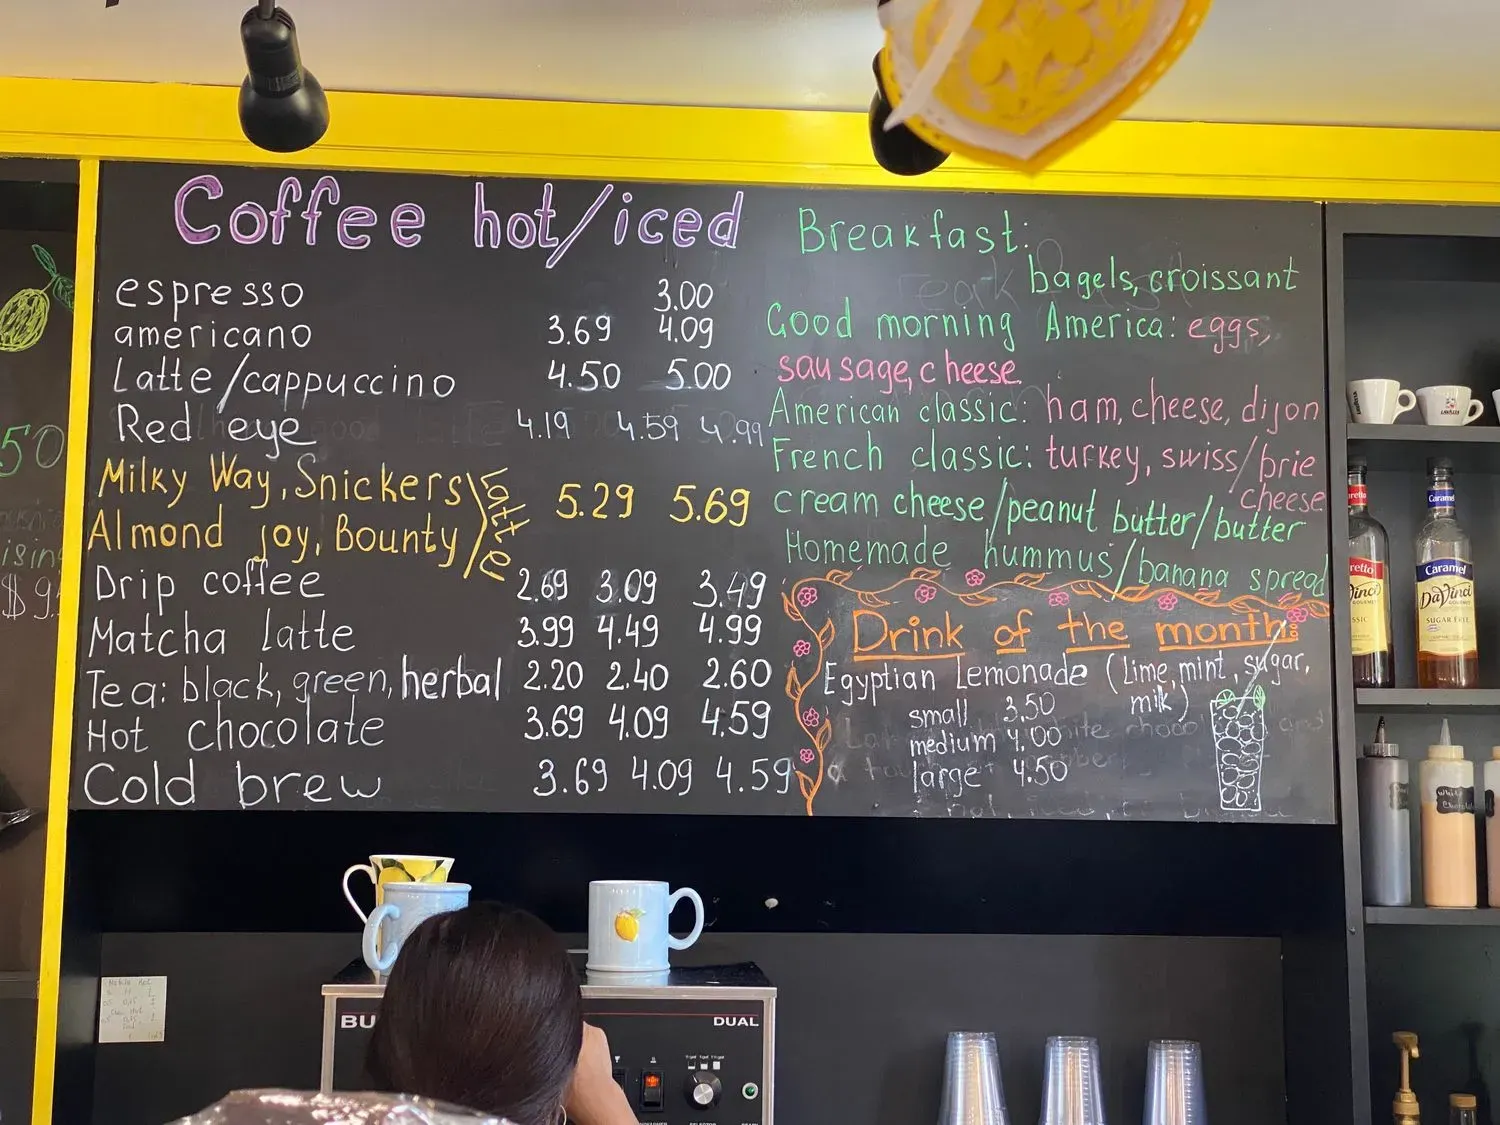 Coffee hot/iced
espresso 3.00
americano 3.69 4.09
Latte/cappuccino 4.50 5.00
Red eye 4.19 4.59 4.99
Milky Way, Snickers
Almond joy, Bounty
Latte
5.29 5.69
Drip coffee 2.69 3.09 3.49
Matcha latte 3.99 4.49 4.99
Tea: black, green, herbal 2.20 2.40 2.60
Hot chocolate 3.69 4.09 4.59
Cold brew 3.69 4.09 4.59
Breakfast:
bagels, croissant
Good morning America: eggs,
sausage, cheese.
American classic: ham, cheese, dijon
French classic: turkey, swiss/brie
cheese
cream cheese/peanut butter/butter
Homemade hummus/banana spread
Drink of the month:
Egyptian Lemonade (lime, mint, sugar,
milk)
small 3.50
medium 4.00
large 4.50
50
$9.
BU
DUAL
Caramel
DaVinci
GOURMET
SUGAR FREE
LAVAZZA